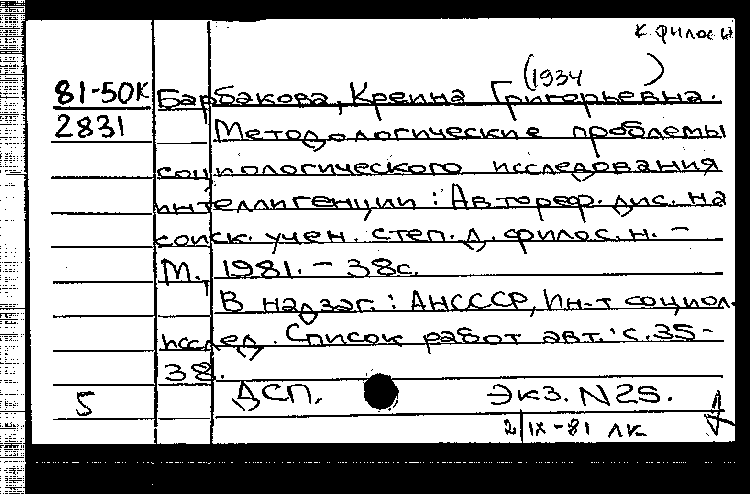 к. филос н
(1934 )
81-50К Барбакова, Креина Григорьевна.
2831 Методологические проблемы
социологического исследования
интеллигенции : Автореф. дис. на
соиск. учен. степ. д. филос. н. –
М., 1981. – 38с.
В надзаг. : АНСССР, Ин-т социол.
исслед. Список работ авт.: с. 35–
38.
5 ДСП. Экз. N 25.
2/IX-81 ЛК